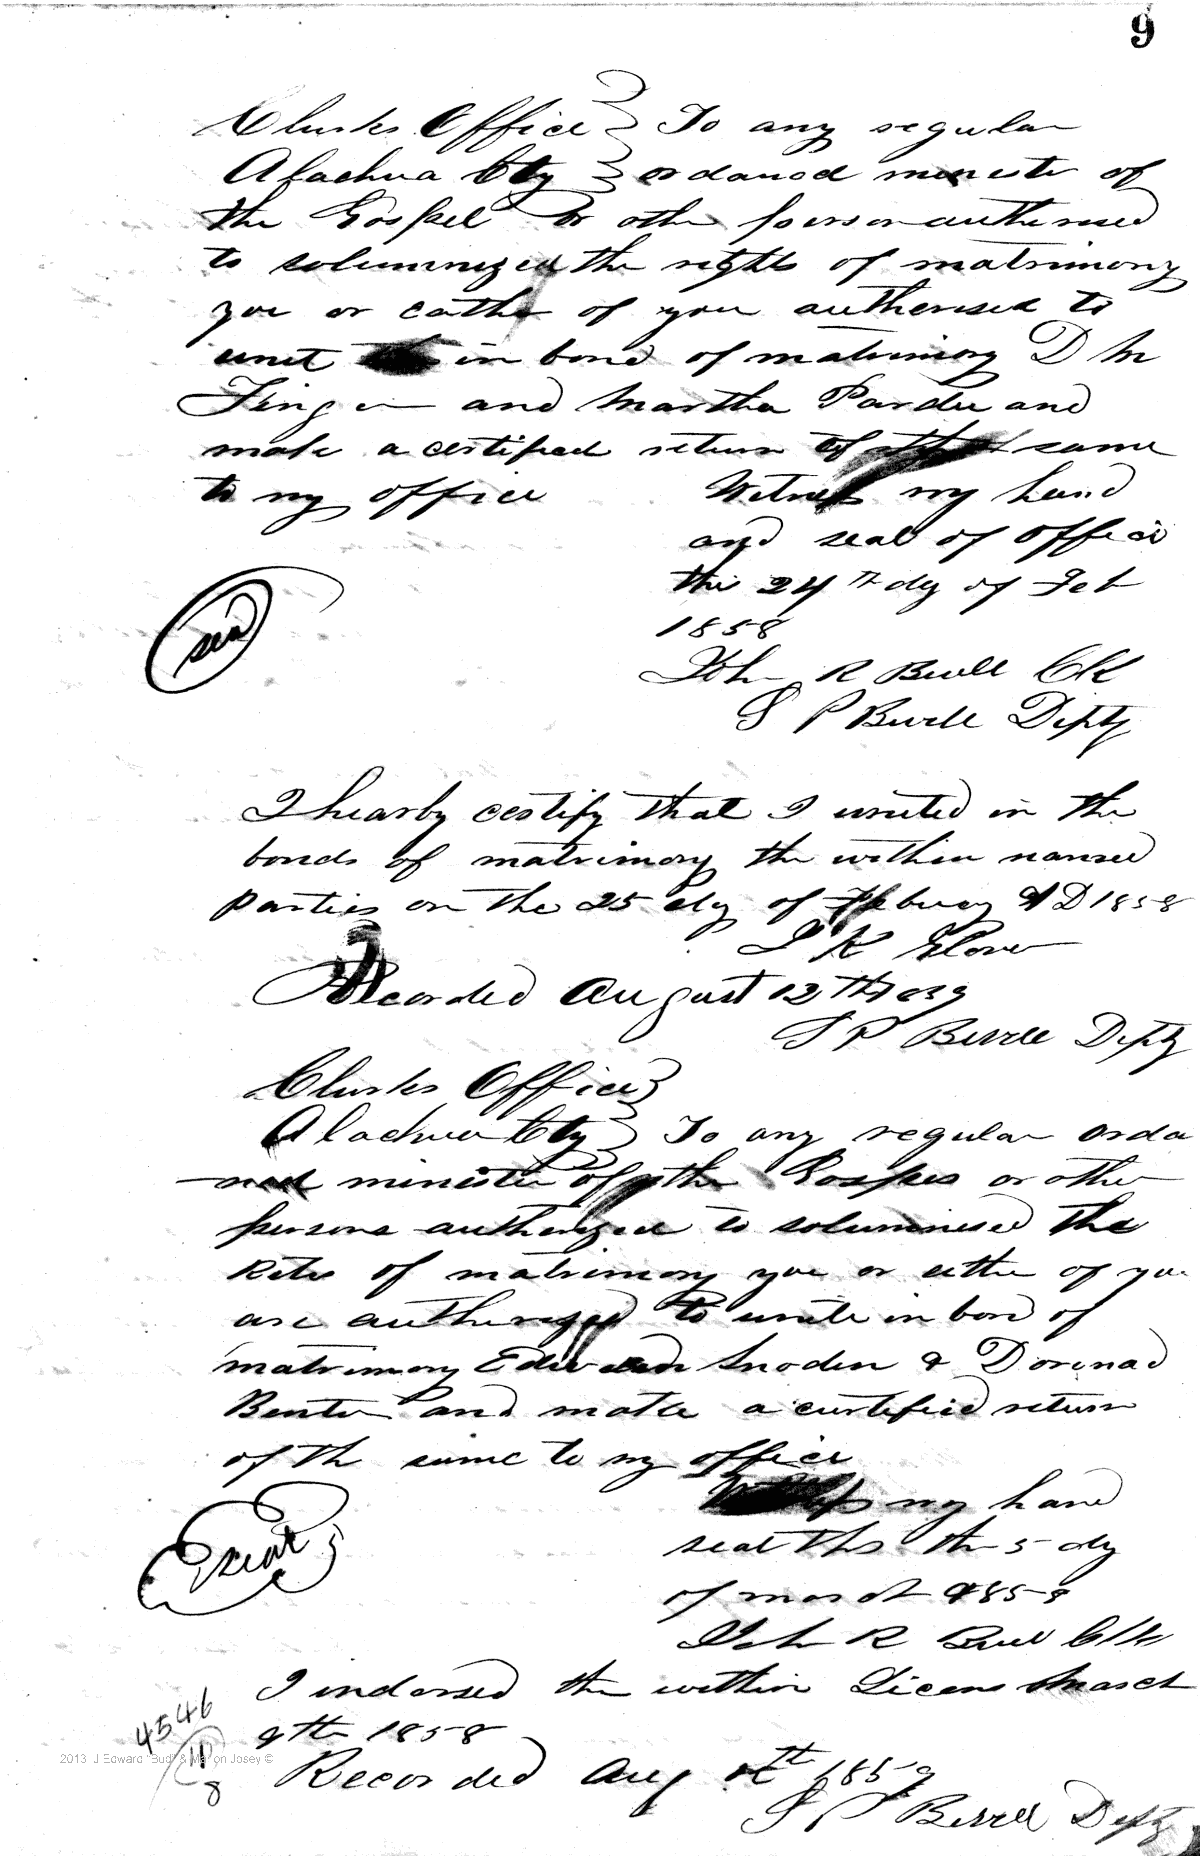 9
Clerks Office } To any regular
Alachua Cty } ordained minister of
the Gospel or other person autherised
to solumnized the rights of matrimony
you or eather of you autherised to
unit in bond of matrimony D M
Finger and Martha Pardee and
make a certified return of the same
to my office Witness my hand
and seal of office
this 24th dy of Feb
1858
seal
John R Bevill Clk
S P Bevill Depty
I hearby certify that I united in the
bonds of matrimony the within named
parties on the 25 dy of Febuary AD 1858
K Glover
Recorded August 12th 1859
S P Bevill Depty
Clerks Office }
Alachua Cty } To any regular orda
-ned minister of the Gospel or other
persons autherized to solumnised the
Rites of matrimony you or eithe of you
are autherized to unite in bond of
matrimony Edward Snoden &
and make a certified return
of th same to my office
Witness my hand
seal this th 5 dy
of march 1858
seal
John R Bevill Clk
I indorsed the within Licens March
9th 1858
4546
8
Recorded Aug 12th 1859
S P Bevill Depty
2013 J Edward "Bud" & Marion Josey ©